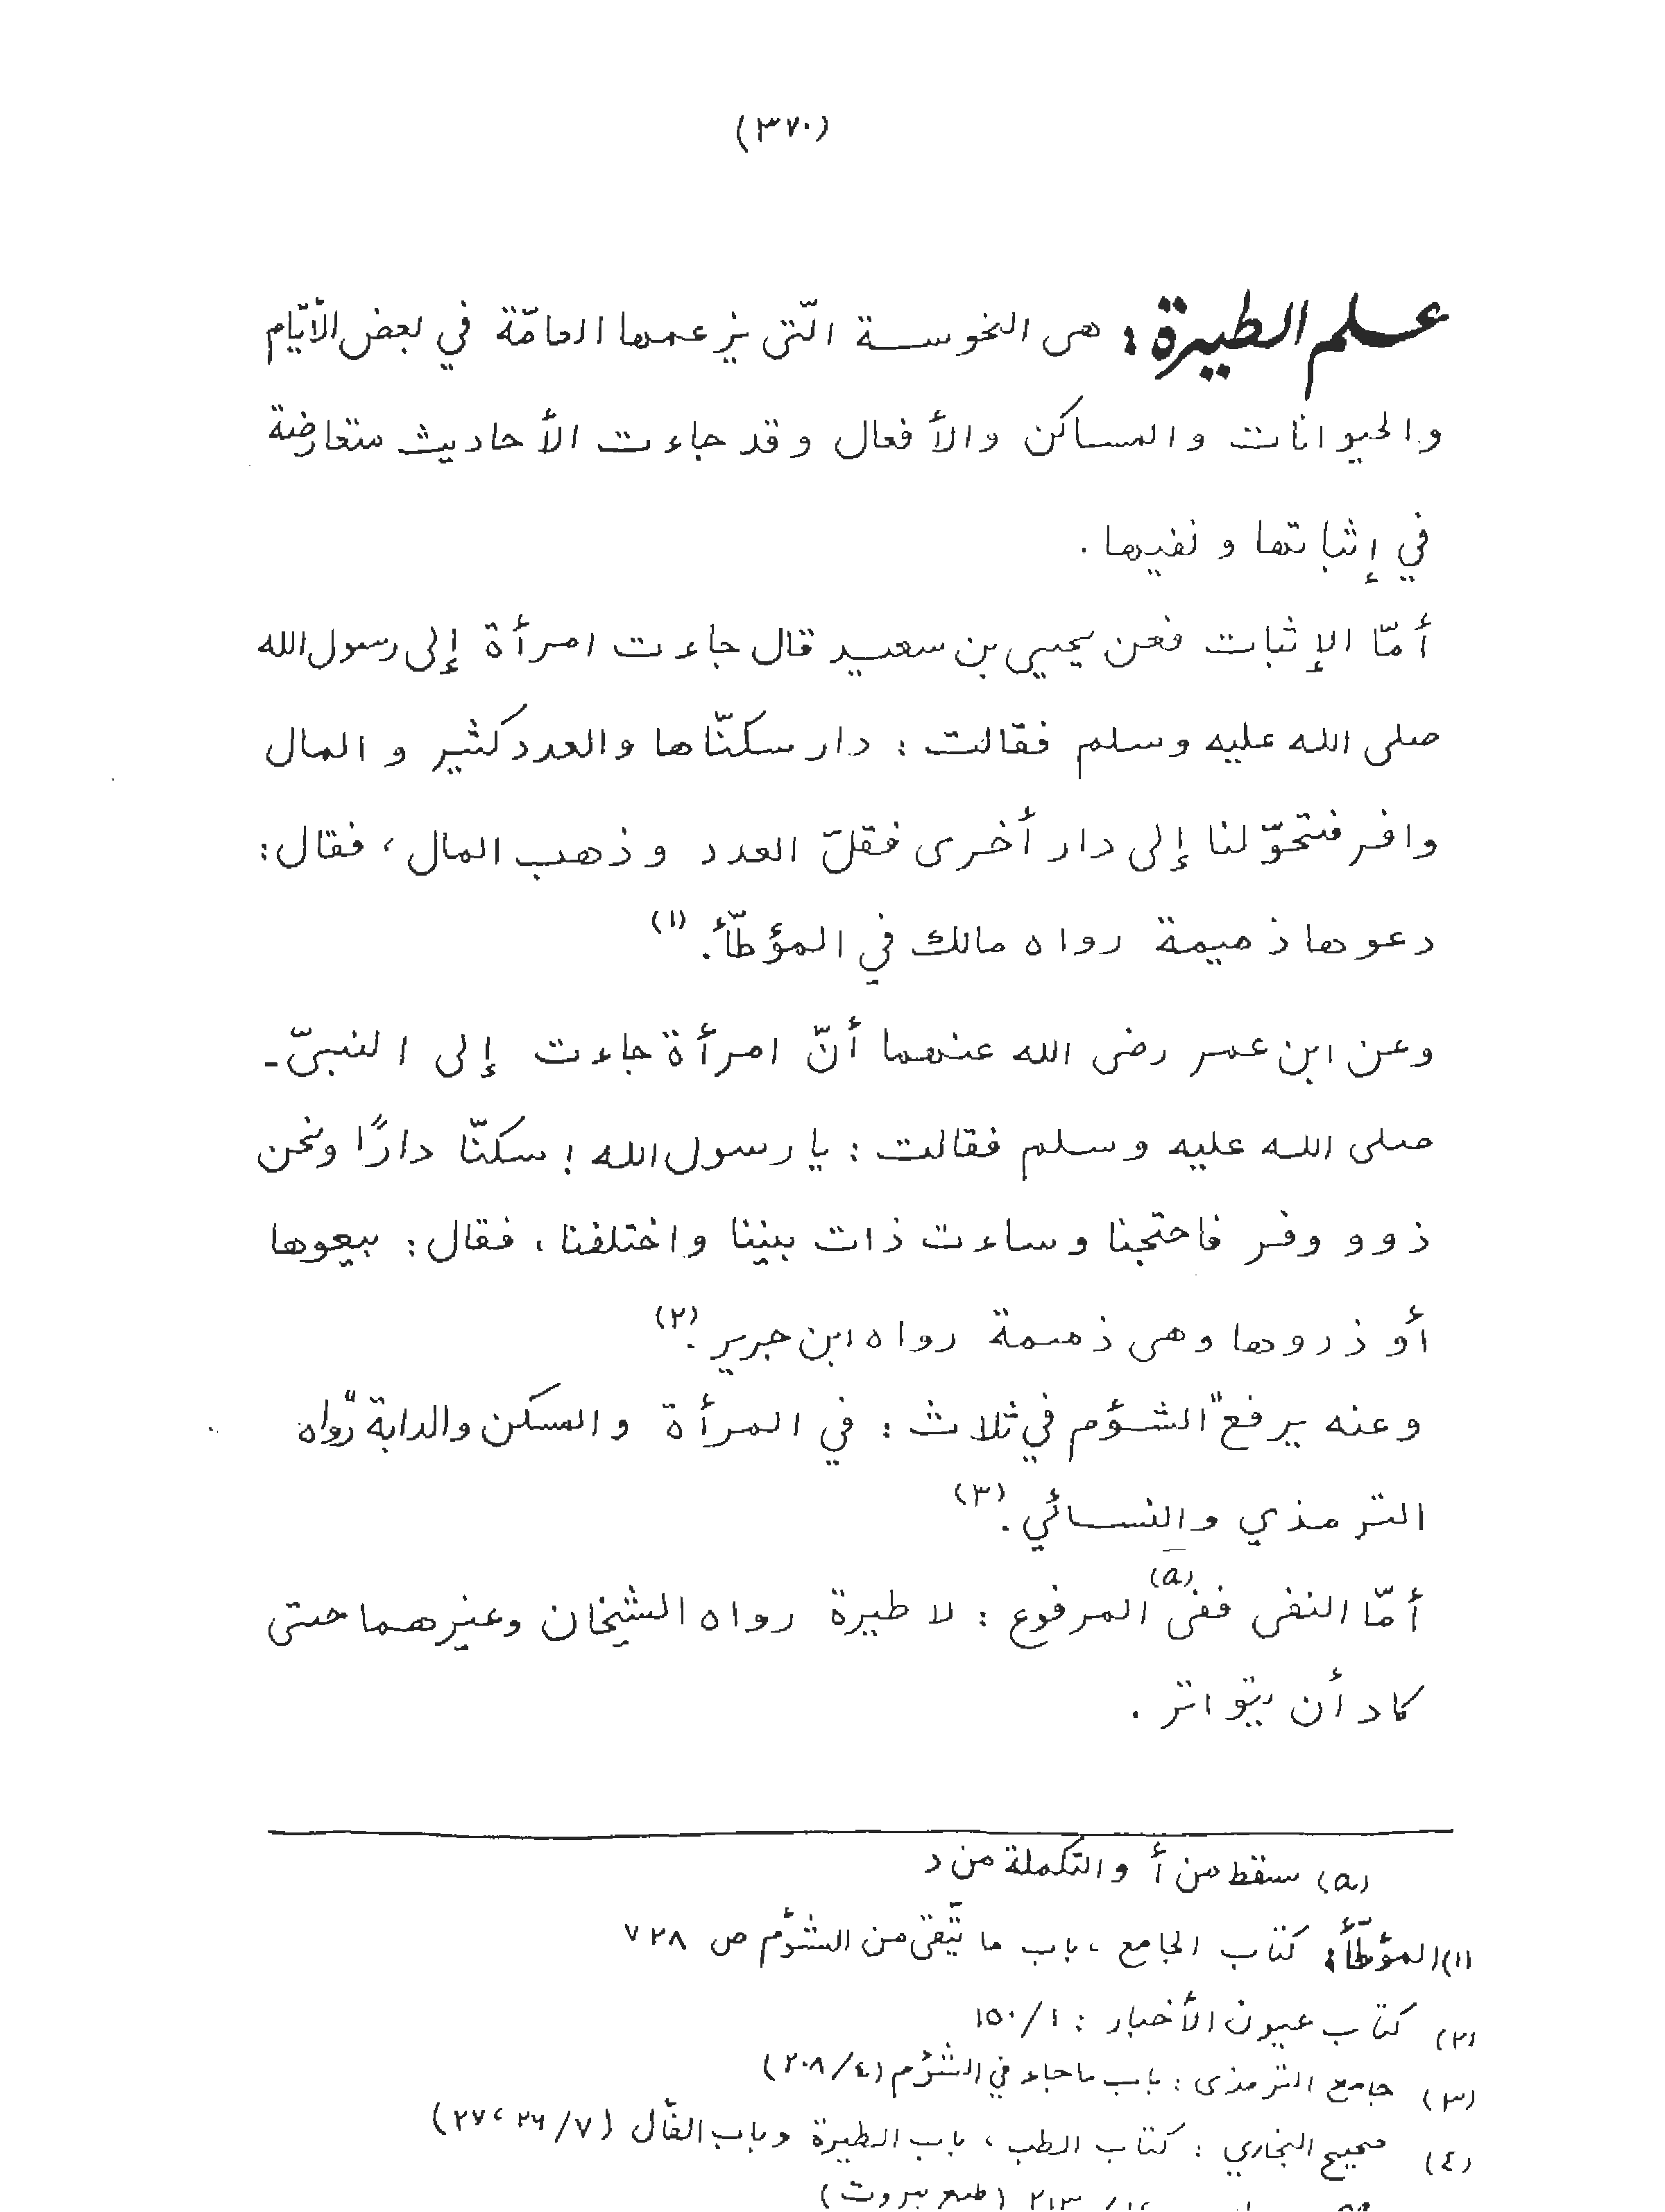 (٣٧٠)
علم الطيرة: هى النحوسة الّتى يزعمها العامّة في بعض الأيّام
والحيوانات والمساكن والأفعال وقد جاءت الأحاديث متعارضة
في إثباتها ونفيها.
أمّا الإثبات فعن يحيي بن سعيد قال جاءت امرأة إلى رسول الله
صلى الله عليه وسلم فقالت: دار سكنّاها والعدد كثير والمال
وافر فتحوّلنا إلى دار أخرى فقلّ العدد وذهب المال، فقال:
دعوها ذميمة رواه مالك في المؤطّأ. (١)
وعن ابن عمر رضى الله عنهما أنّ امرأة جاءت إلى النبىّ -
صلى الله عليه وسلم فقالت: يا رسول الله! سكنّا دارًا ونحن
ذوو وفر فاحتجنا وساءت ذات بيننا واختلفنا، فقال: بيعوها
أو ذروها وهى ذميمة رواه ابن جرير. (٢)
وعنه يرفع "الشؤم في ثلاث: في المرأة والمسكن والدابة" رواه
الترمذي والنسائي. (٣)
أمّا النفى ففى (a) المرفوع: لا طيرة رواه الشيخان وغيرهما حتى
كاد أن يتواتر.
(a) سقط من أ والتكملة من د
(١) المؤطّأ: كتاب الجامع، باب ما يتّقى من الشؤم ص ٧٢٨
(٢) كتاب عيون الأخبار: ١/١٥٠
(٣) جامع الترمذى: باب ماجاء في الشؤم (٤/٢٠٨)
(٤) صحيح البخاري: كتاب الطب، باب الطيرة وباب الفأل (٧/٢٦، ٢٧)
٢١٣ (طبع بيروت)